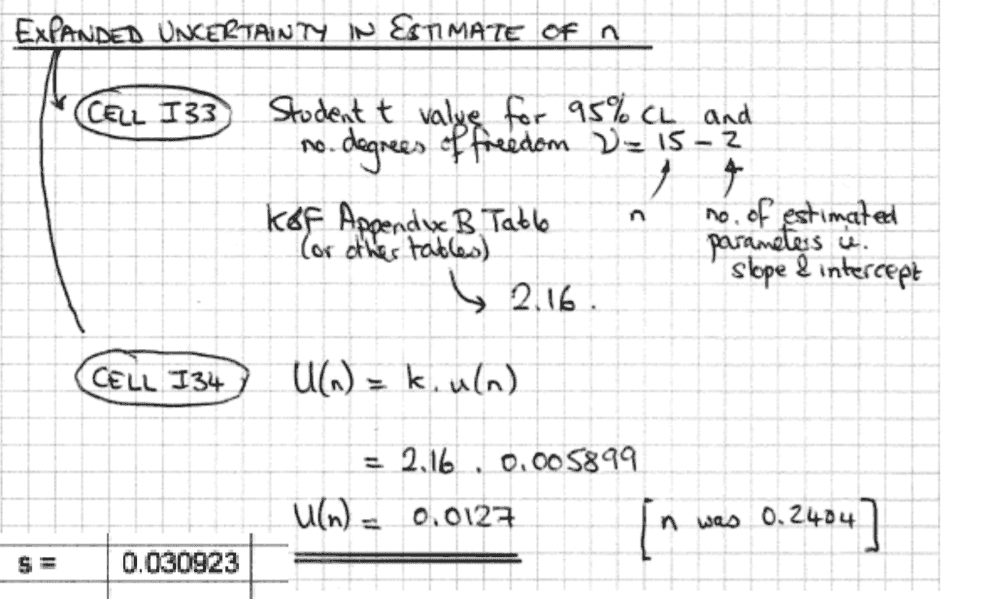 EXPANDED UNCERTAINTY IN ESTIMATE OF n
CELL I33 Student t value for 95% CL and
no. degrees of freedom ν = 15 - 2
n no. of estimated
parameters ie.
slope & intercept
K&F Appendix B Table
(or other tables)
2.16.
CELL I34 U(n) = k. u(n)
= 2.16 . 0.005899
U(n) = 0.0127 [n was 0.2404]
s = 0.030923